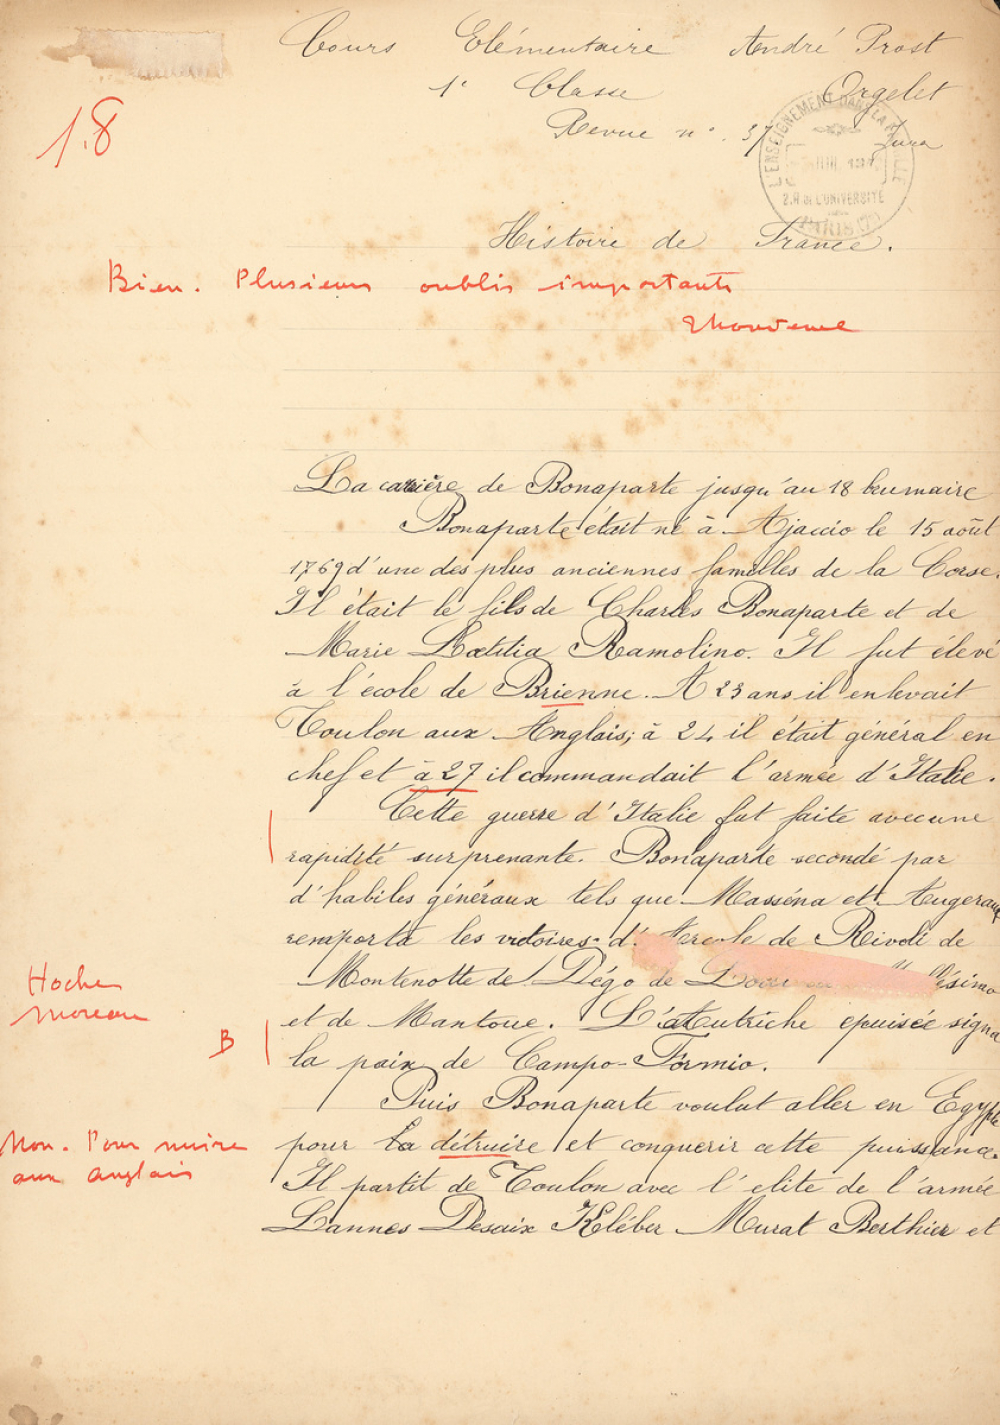 Cours Elémentaire André Prost
1e Classe Orgelet
Revue n°. 37 Jura
L'ENSEIGNEMENT DANS LA FAMILLE
2. R. DE L'UNIVERSITÉ
PARIS
18
Histoire de France.
Bien. Plusieurs oublis importants
La carrière de Bonaparte jusqu'au 18 brumaire
Bonaparte était né à Ajaccio le 15 août
1769 d'une des plus anciennes familles de la Corse.
Il était le fils de Charles Bonaparte et de
Marie Lætitia Ramolino. Il fut élevé
à l'école de Brienne. A 23 ans il enlevait
Toulon aux Anglais; à 24 il était général en
chef et à 27 il commandait l'armée d'Italie.
Cette guerre d'Italie fut faite avec une
rapidité surprenante. Bonaparte secondé par
d'habiles généraux tels que Masséna et Augereau
remporta les victoires d'Arcole de Rivoli de
Montenotte de Dégo de
et de Mantoue. L'Autriche épuisée signa
la paix de Campo-Formio.
Hoche
Moreau
B
Puis Bonaparte voulut aller en Egypte
pour la détruire et conquerir cette puissance.
Non. Pour nuire
aux Anglais
Il partit de Toulon avec l'elite de l'armée
Lannes Desaix Kléber Murat Berthier et